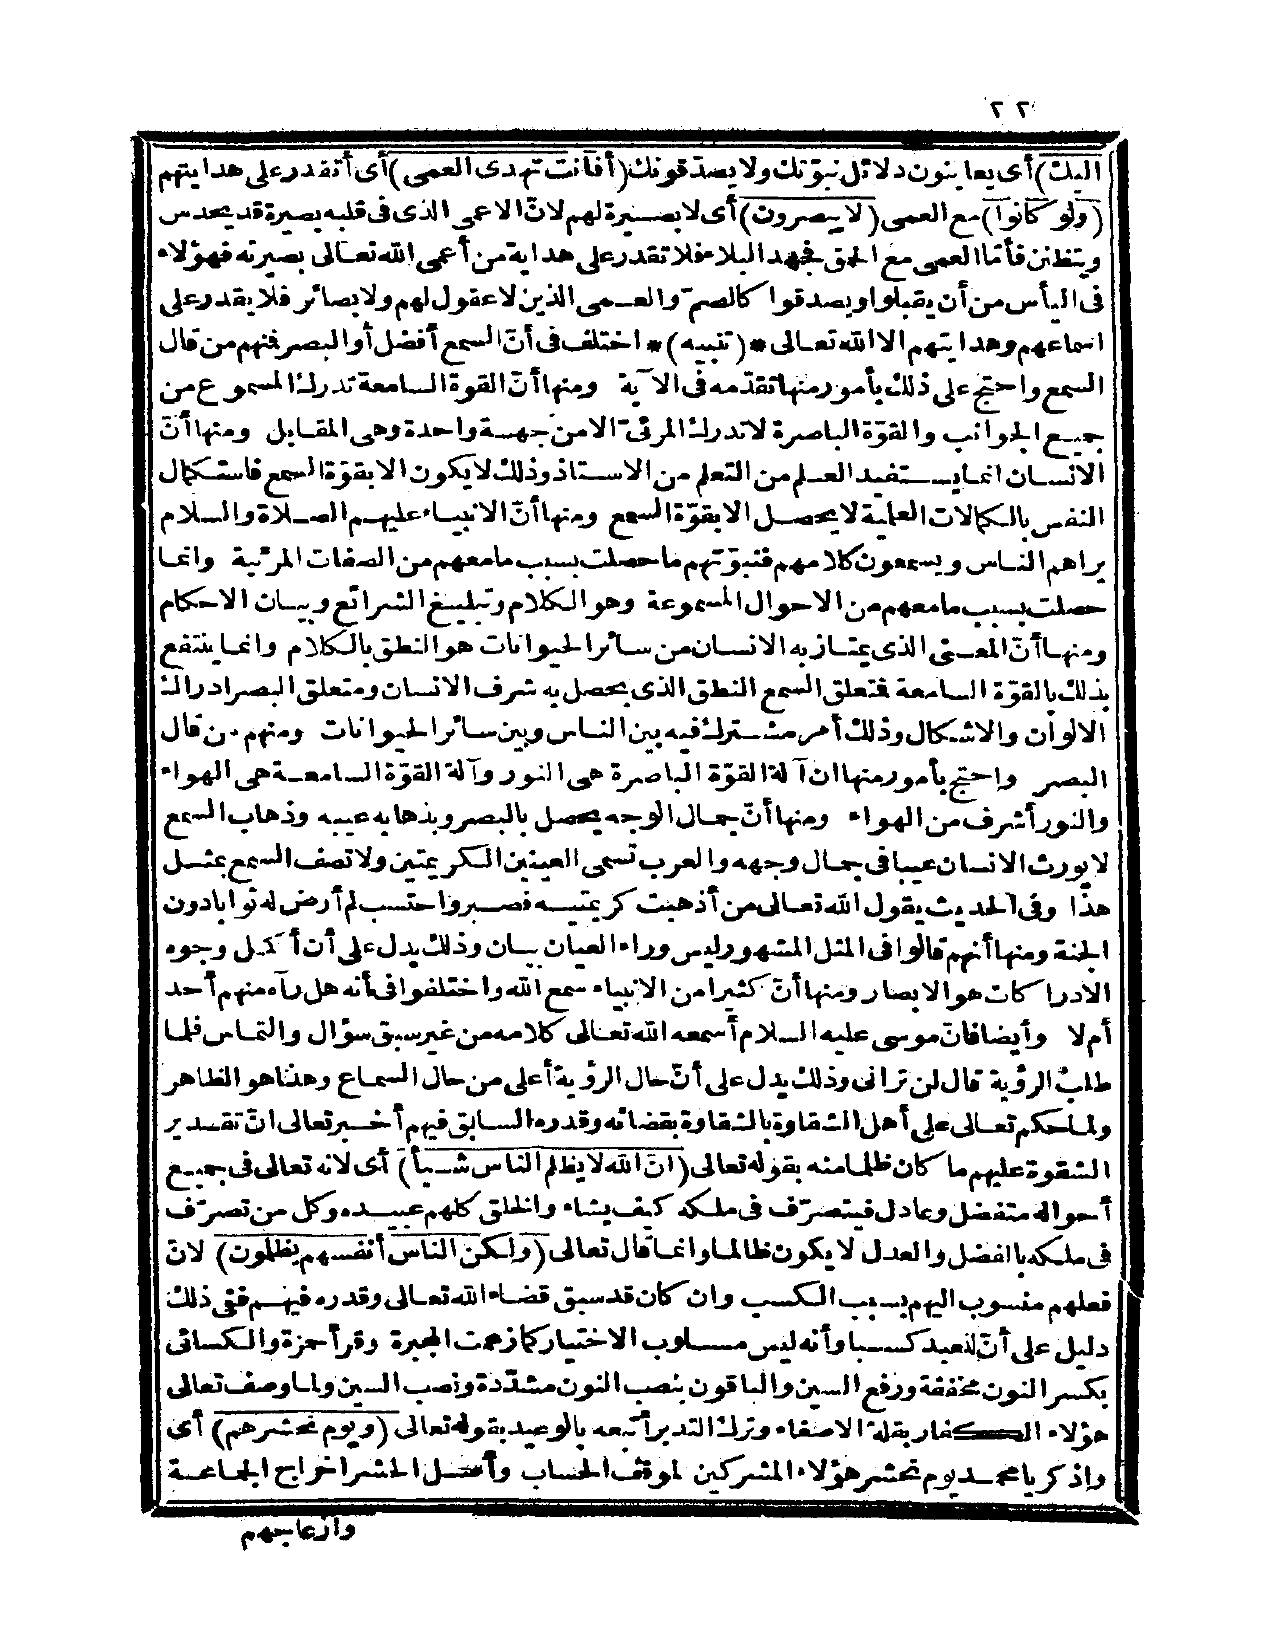 ٢٢
اليك) أى يعاينون دلائل نبوّتك ولا يصدقونك (أفأنت تهدى العمى) أى أتقدر على هدايتهم
(ولو كانوا) مع العمى (لا يبصرون) أى لا بصيرة لهم لانّ الاعمى الذى فى قلبه بصيرة قد يحدس
ويتظنن فأمّا العمى مع الحمق فجهد البلاء فلا تقدر على هداية من أعمى الله تعالى بصيرته فهؤلاء
فى اليأس من أن يقبلوا ويصدقوا كالصمّ والعمى الذين لا عقول لهم ولا بصائر فلا يقدر على
اسماعهم وهدايتهم الا الله تعالى *(تنبيه)* اختلف فى أنّ السمع أفضل أو البصر فمنهم من قال
السمع واحتج على ذلك بأمور منها تقدّمه فى الآية ومنها أنّ القوة السامعة تدرك المسموع من
جميع الجوانب والقوّة الباصرة لا تدرك المرئىّ الا من جهة واحدة وهى المقابل ومنها أنّ
الانسان انما يستفيد العلم من التعلم من الاستاذ وذلك لا يكون الا بقوّة السمع فاستكمال
النفس بالكمالات العلمية لا يحصل الا بقوّة السمع ومنها أنّ الانبياء عليهم الصلاة والسلام
يراهم الناس ويسمعون كلامهم فنبوّتهم ما حصلت بسبب ما معهم من الصفات المرئية وانما
حصلت بسبب ما معهم من الاحوال المسموعة وهو الكلام وتبليغ الشرائع وبيان الاحكام
ومنها أنّ المعنى الذى يمتاز به الانسان من سائر الحيوانات هو النطق بالكلام وانما ينتفع
بذلك بالقوّة السامعة فتعلق السمع النطق الذى يحصل به شرف الانسان ومتعلق البصر ادراك
الالوان والاشكال وذلك أمر مشترك فيه بين الناس وبين سائر الحيوانات ومنهم من قال
البصر واحتج بأمور منها ان آلة القوّة الباصرة هى النور وآلة القوّة السامعة هى الهواء
والنور أشرف من الهواء ومنها أنّ جمال الوجه يحصل بالبصر وبذهابه عيبه وذهاب السمع
لا يورث الانسان عيبا فى جمال وجهه والعرب تسمى العينين الكريمتين ولا تصف السمع بمثل
هذا وفى الحديث يقول الله تعالى من أذهبت كريمتيه فصبر واحتسب لم أرض له ثوابا دون
الجنة ومنها أنهم قالوا فى المثل المشهور ليس وراء العيان بيان وذلك يدل على أن أكمل وجوه
الادراكات هو الابصار ومنها أنّ كثيرا من الانبياء سمع الله واختلفوا فى أنه هل رآه منهم أحد
أم لا وأيضا فانّ موسى عليه السلام أسمعه الله تعالى كلامه من غير سبق سؤال والتماس فلما
طلب الرؤية قال لن ترانى وذلك يدل على أنّ حال الرؤية أعلى من حال السماع وهذا هو الظاهر
ولما حكم تعالى على أهل الشقاوة بالشقاوة بقضائه وقدره السابق فيهم أخبر تعالى انّ تقدير
الشقوة عليهم ما كان ظلما منه بقوله تعالى (انّ الله لا يظلم الناس شيأ) أى لانه تعالى فى جميع
أحواله متفضل وعادل فيتصرّف فى ملكه كيف يشاء والخلق كلهم عبيده وكل من تصرّف
فى ملكه بالفضل والعدل لا يكون ظالما وانما قال تعالى (ولكن الناس أنفسهم يظلمون) لانّ
فعلهم منسوب اليهم بسبب الكسب وان كان قد سبق قضاء الله تعالى وقدره فيهم ففى ذلك
دليل على أنّ للعبد كسبا وأنه ليس مسلوب الاختيار كما زعمت المجبرة وقرأ حمزة والكسائى
بكسر النون مخففة ورفع السين والباقون بنصب النون مشدّدة ونصب السين ولما وصف تعالى
هؤلاء الكفار بقلة الاصغاء وترك التدبر أتبعه بالوعيد بقوله تعالى (ويوم نحشرهم) أى
واذكر يا محمد يوم نحشر هؤلاء المشركين لموقف الحساب وأصل الحشر اخراج الجماعة
وازعاجهم